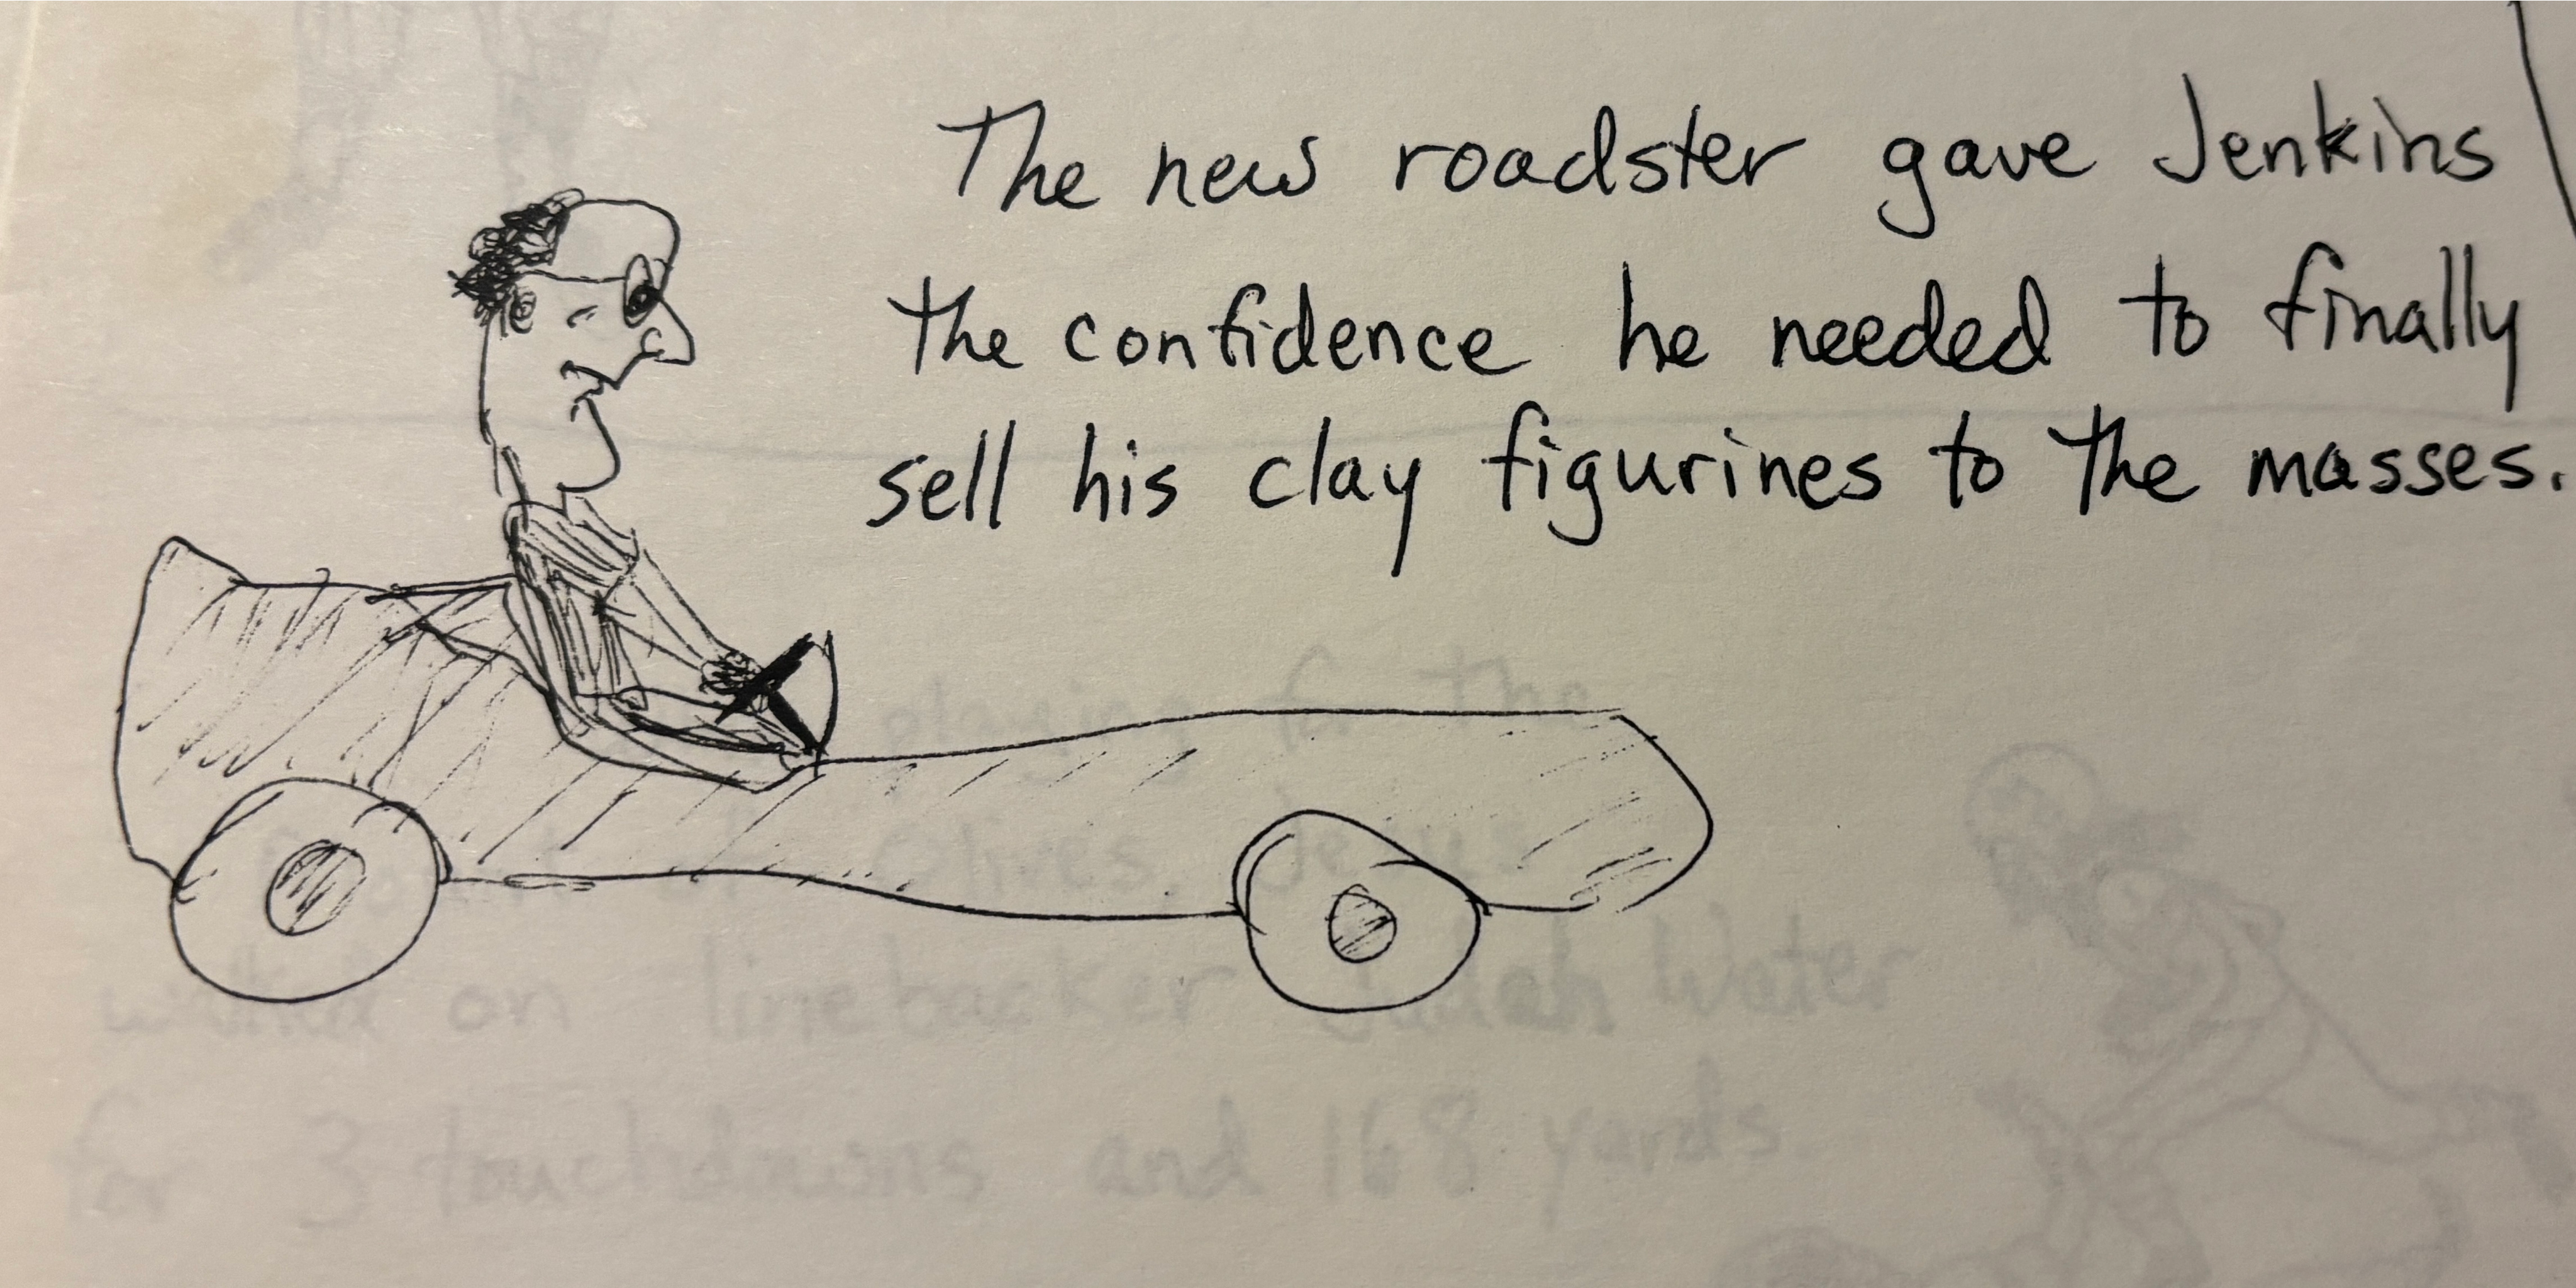 The new roadster gave Jenkins
the confidence he needed to finally
sell his clay figurines to the masses.
playing for the
on linebacker Judah Water
for 3 touchdowns and 168 yards